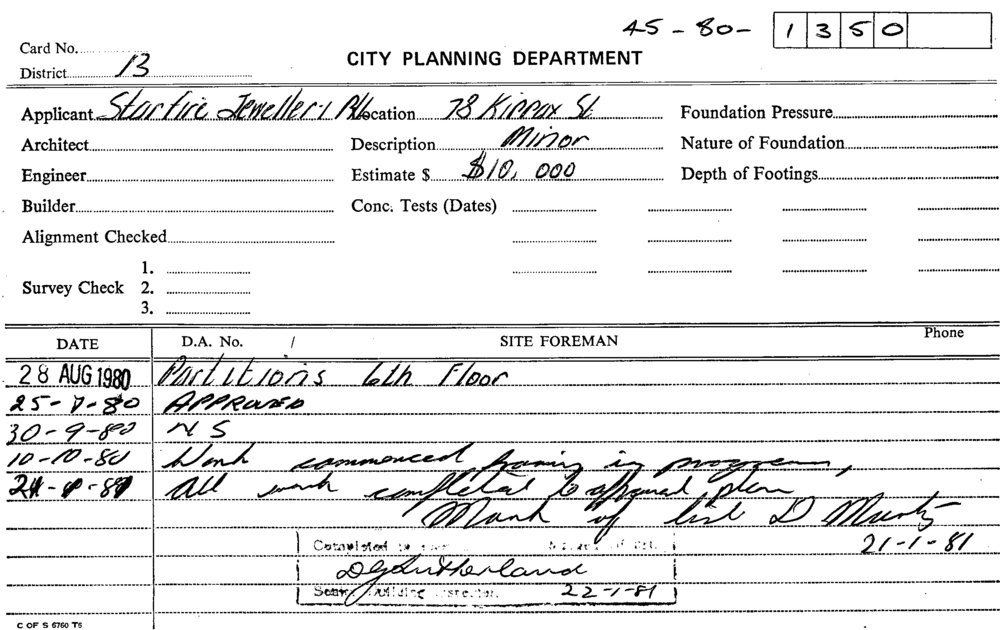 45-80- 1350
Card No.
District 13
CITY PLANNING DEPARTMENT
Applicant Starfire Jewellery P/L Location 78 Kippax St Foundation Pressure
Architect Description Minor Nature of Foundation
Engineer Estimate $ $10,000 Depth of Footings
Builder Conc. Tests (Dates)
Alignment Checked
1.
Survey Check 2.
3.
DATE D.A. No. / SITE FOREMAN Phone
28 AUG 1980 Partitions 6th Floor
80 APPROVED
30-9-80 NS
10-10-80 Work commenced framing in progress,
All work completed to approval plan
Mark off list D
21-1-81
Completed
DGSutherland
Senior Building Inspector. 22-1-81
C OF S 6760 T6